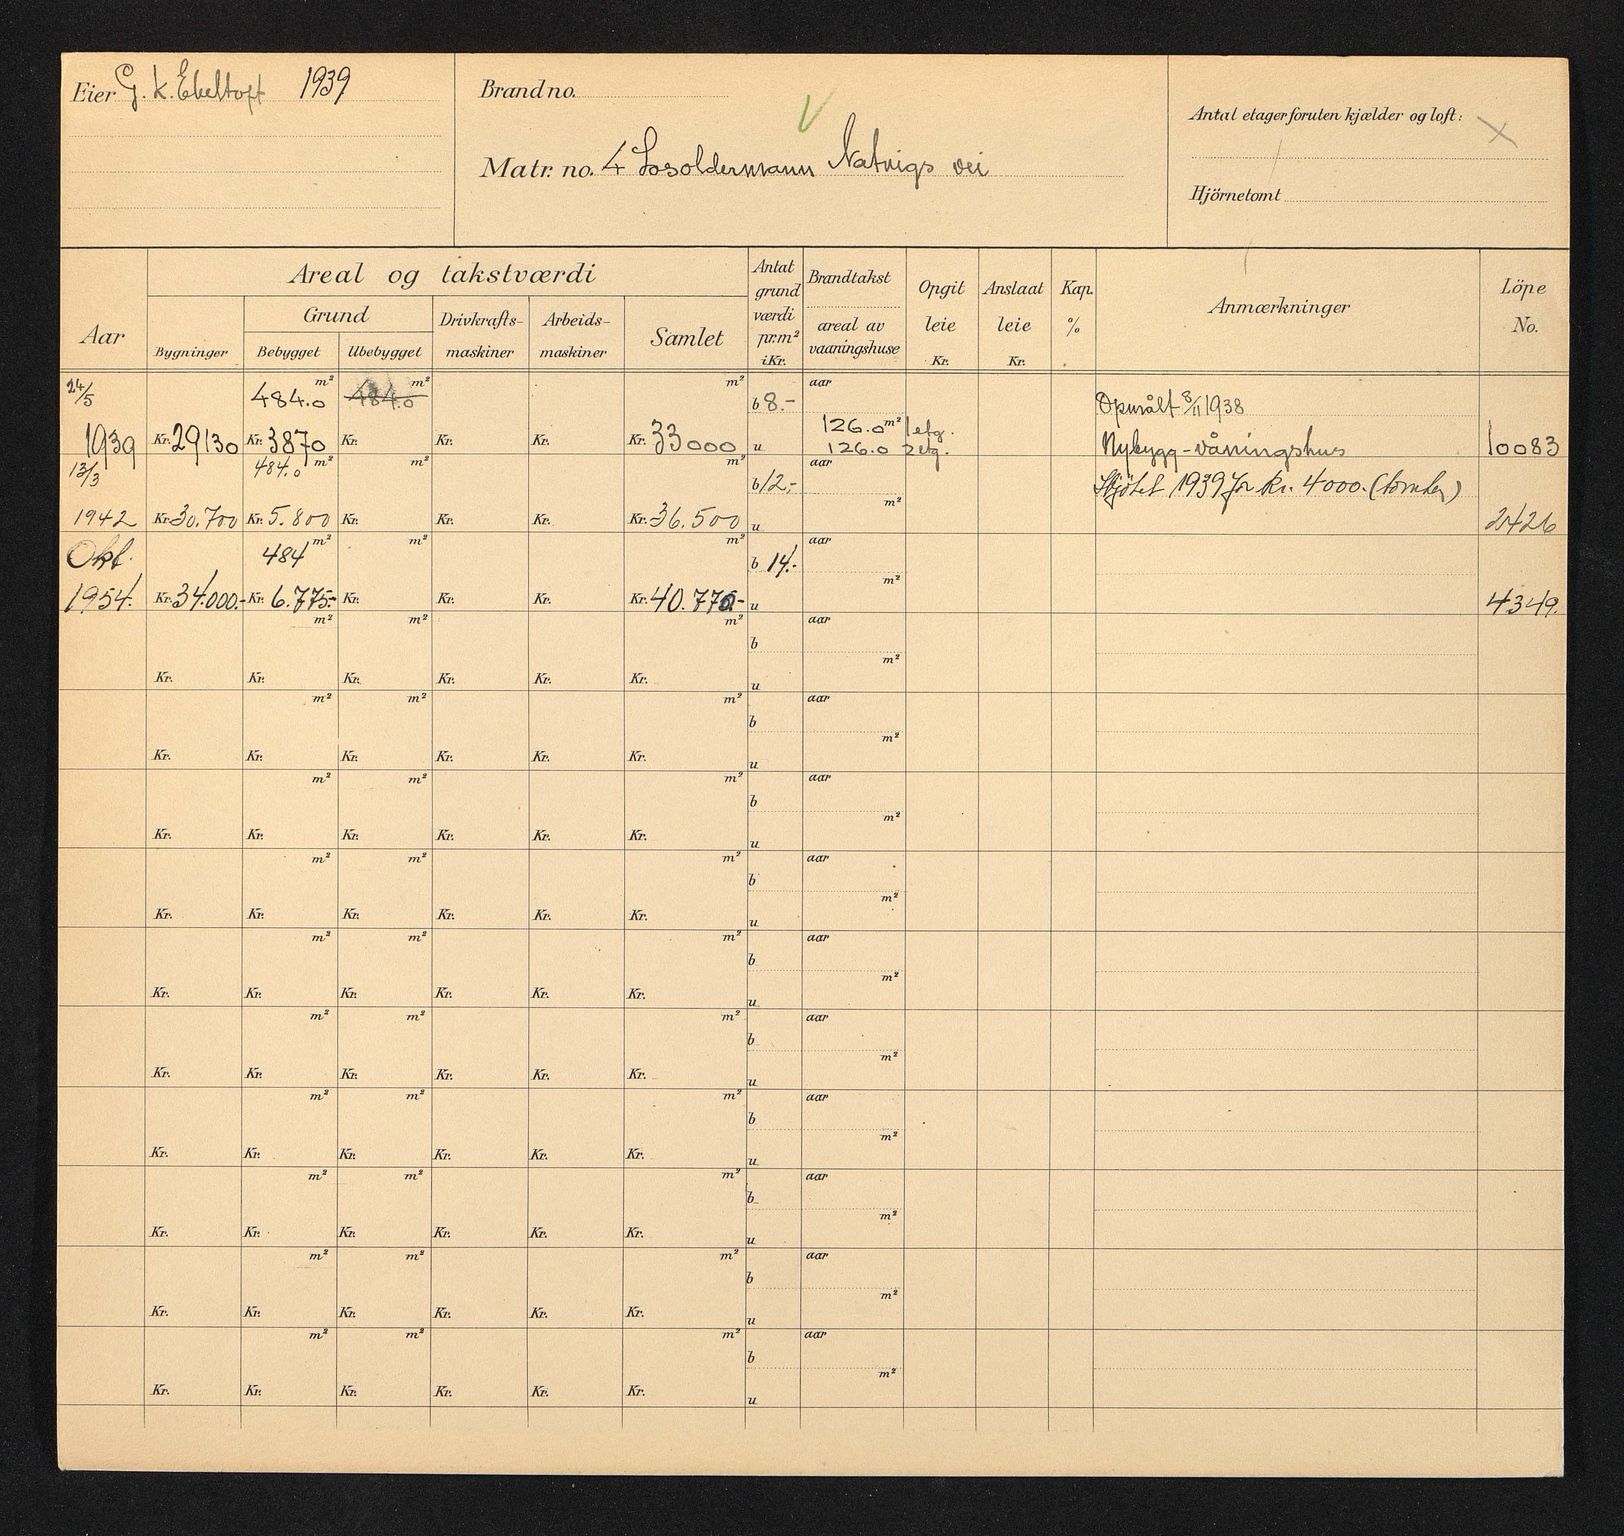 Eier G. K. Ebeltoft 1939
Brand no.
Matr. no. 4 Losoldermann Natvigs vei
Antal etager foruten kjælder og loft:
Hjörnetomt
Aar
Areal og takstværdi
Grund
Bygninger
Bebygget
Ubebygget
Drivkrafts-
maskiner
Arbeids-
maskiner
Samlet
Antat
grund
værdi
pr.m²
i Kr.
Brandtakst
areal av
vaaningshuse
Opgit
leie
Kr.
Anslaat
leie
Kr.
Kap.
%
Anmærkninger
Löpe
No.
24/5 484.0 m² 484.0 m² m² b 8.- aar Opmålt 8/11 1938
126.0 m² 1 etg.
1939 Kr. 29130 Kr. 3870 Kr. Kr. Kr. Kr. 33000 u 126.0 2 etg. Nybygg-våningshus 10083
13/3 484.0 m² m² m² b 12,- aar Skjötet 1939 for kr. 4000.(tomten)
m²
1942 Kr. 30.700 Kr. 5.800 Kr. Kr. Kr. Kr. 36.500 u 2426
Okt. 484 m² m² m² b 14.- aar
m²
1954. Kr. 34.000.- Kr. 6.775.- Kr. Kr. Kr. Kr. 40.775.- u 4349.
m² m² m² b aar
m²
Kr. Kr. Kr. Kr. Kr. Kr. u
m² m² m² b aar
m²
Kr. Kr. Kr. Kr. Kr. Kr. u
m² m² m² b aar
m²
Kr. Kr. Kr. Kr. Kr. Kr. u
m² m² m² b aar
m²
Kr. Kr. Kr. Kr. Kr. Kr. u
m² m² m² b aar
m²
Kr. Kr. Kr. Kr. Kr. Kr. u
m² m² m² b aar
m²
Kr. Kr. Kr. Kr. Kr. Kr. u
m² m² m² b aar
m²
Kr. Kr. Kr. Kr. Kr. Kr. u
m² m² m² b aar
m²
Kr. Kr. Kr. Kr. Kr. Kr. u
m² m² m² b aar
m²
Kr. Kr. Kr. Kr. Kr. Kr. u
m² m² m² b aar
m²
Kr. Kr. Kr. Kr. Kr. Kr. u